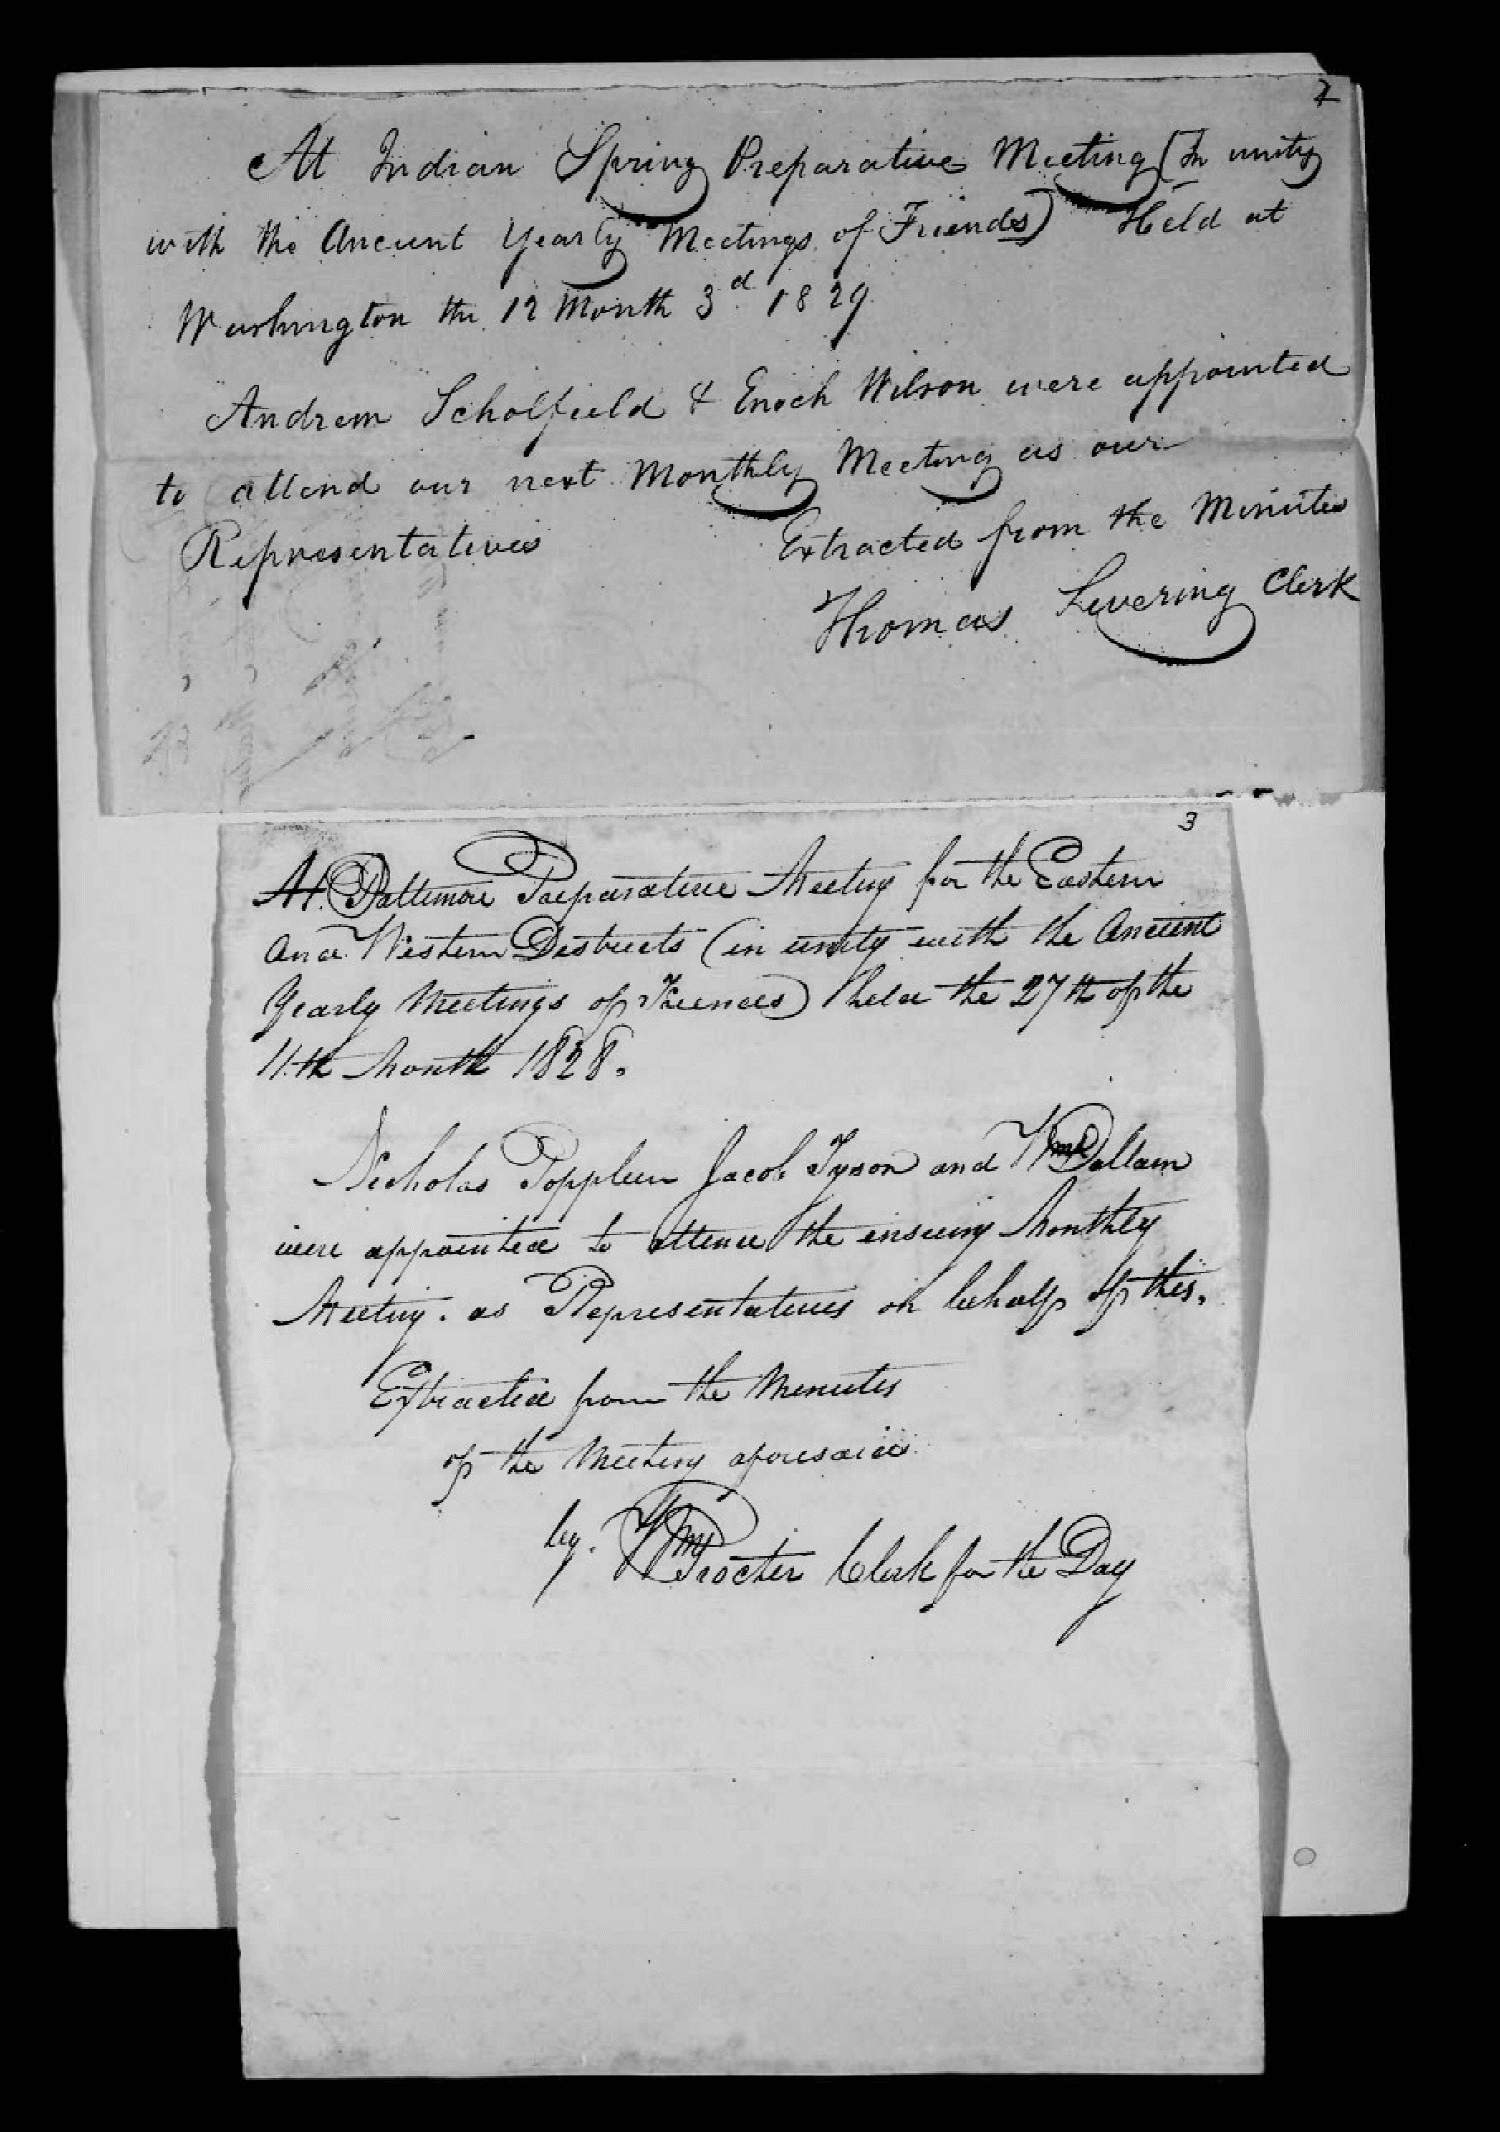 2
At Indian Spring Preparative Meeting (In unity
with the Ancient Yearly Meetings of Friends) Held at
Washington the 12 Month 3d 1829
Andrew Scholfield & Enoch Wilson were appointed
to attend our next Monthly Meeting as our
Representatives
Extracted from the Minutes
Thomas Levering Clerk
3
At Baltimore Preparative Meeting for the Eastern
and Western Districts (in unity with the Ancient
Yearly Meetings of Friends) held the 27th of the
11th Month 1828.
Nicholas Popplein Jacob Tyson and Wm Dallam
were appointed to attend the ensuing Monthly
Meeting. as Representatives on behalf of this.
Extracted from the Minutes
of the Meeting aforesaid
by. Wm Procter Clerk for the Day